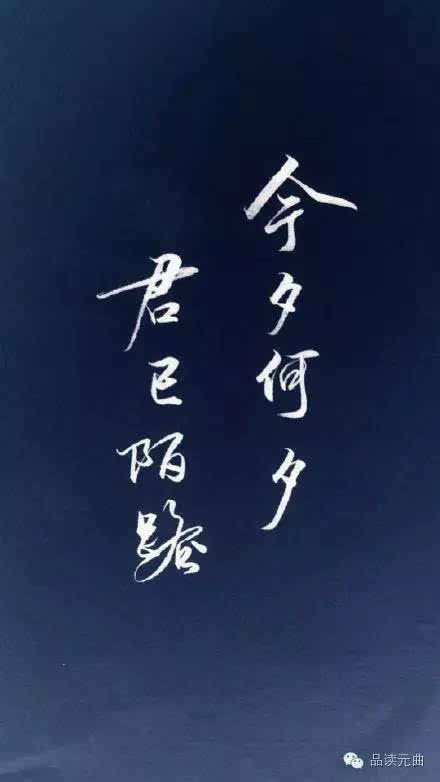 今夕何夕
君已陌路
品读元曲